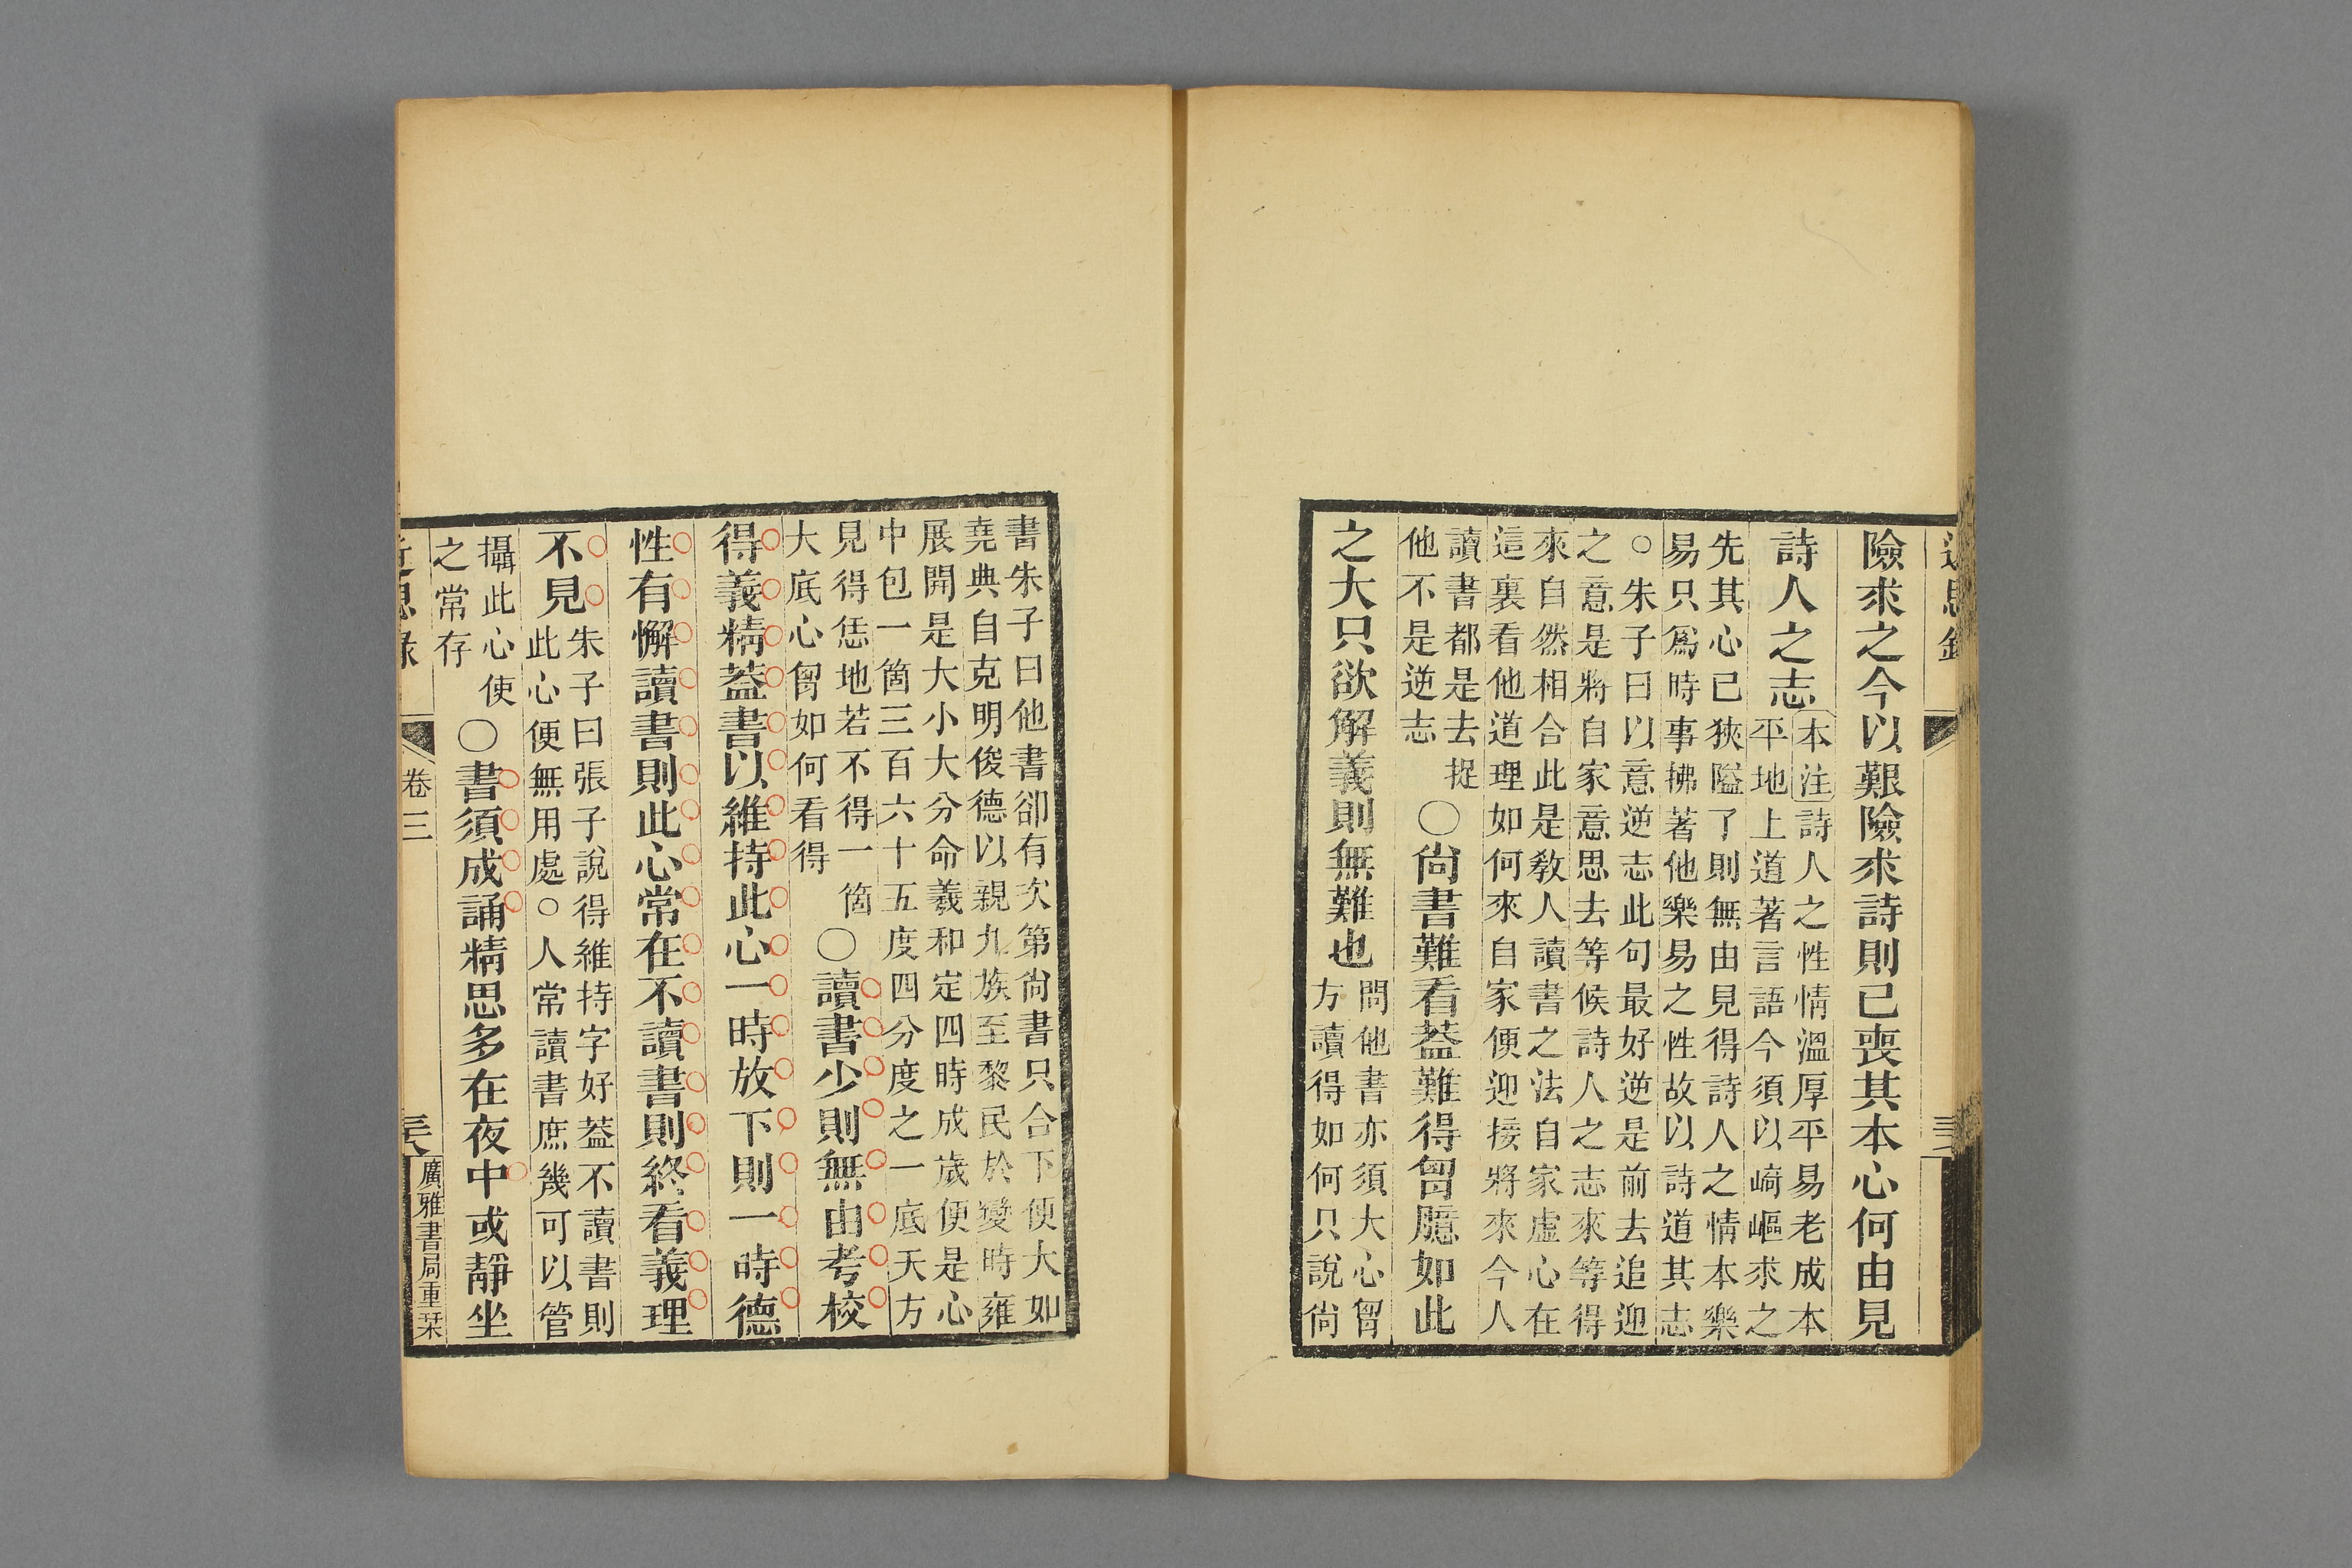 險求之今以艱險求詩則已喪其本心何由見
詩人之志
本注詩人之性情溫厚平易老成本
平地上道著言語今須以崎嶇求之
先其心已狹隘了則無由見得詩人之情本樂
易只爲時事拂著他樂易之性故以詩道其志
○朱子曰以意逆志此句最好逆是前去追迎
之意是將自家意思去等候詩人之志來等得
來自然相合此是敎人讀書之法自家虛心在
這裏看他道理如何來自家便迎接將來今人
讀書都是去捉
他不是逆志
○尙書難看葢難得胷臆如此
之大只欲解義則無難也
問他書亦須大心胷
方讀得如何只說尙
書朱子曰他書卻有次第尙書只合下便大如
堯典自克明俊德以親九族至黎民於變時雍
展開是大小大分命羲和定四時成歲便是心
中包一箇三百六十五度四分度之一底天方
見得恁地若不得一箇
大底心胷如何看得
○讀書少則無由考校
得義精葢書以維持此心一時放下則一時德
性有懈讀書則此心常在不讀書則終看義理
不見
朱子曰張子說得維持字好葢不讀書則
此心便無用處○人常讀書庶幾可以管
攝此心使
之常存
○書須成誦精思多在夜中或靜坐
近思錄
卷三
廣雅書局重栞